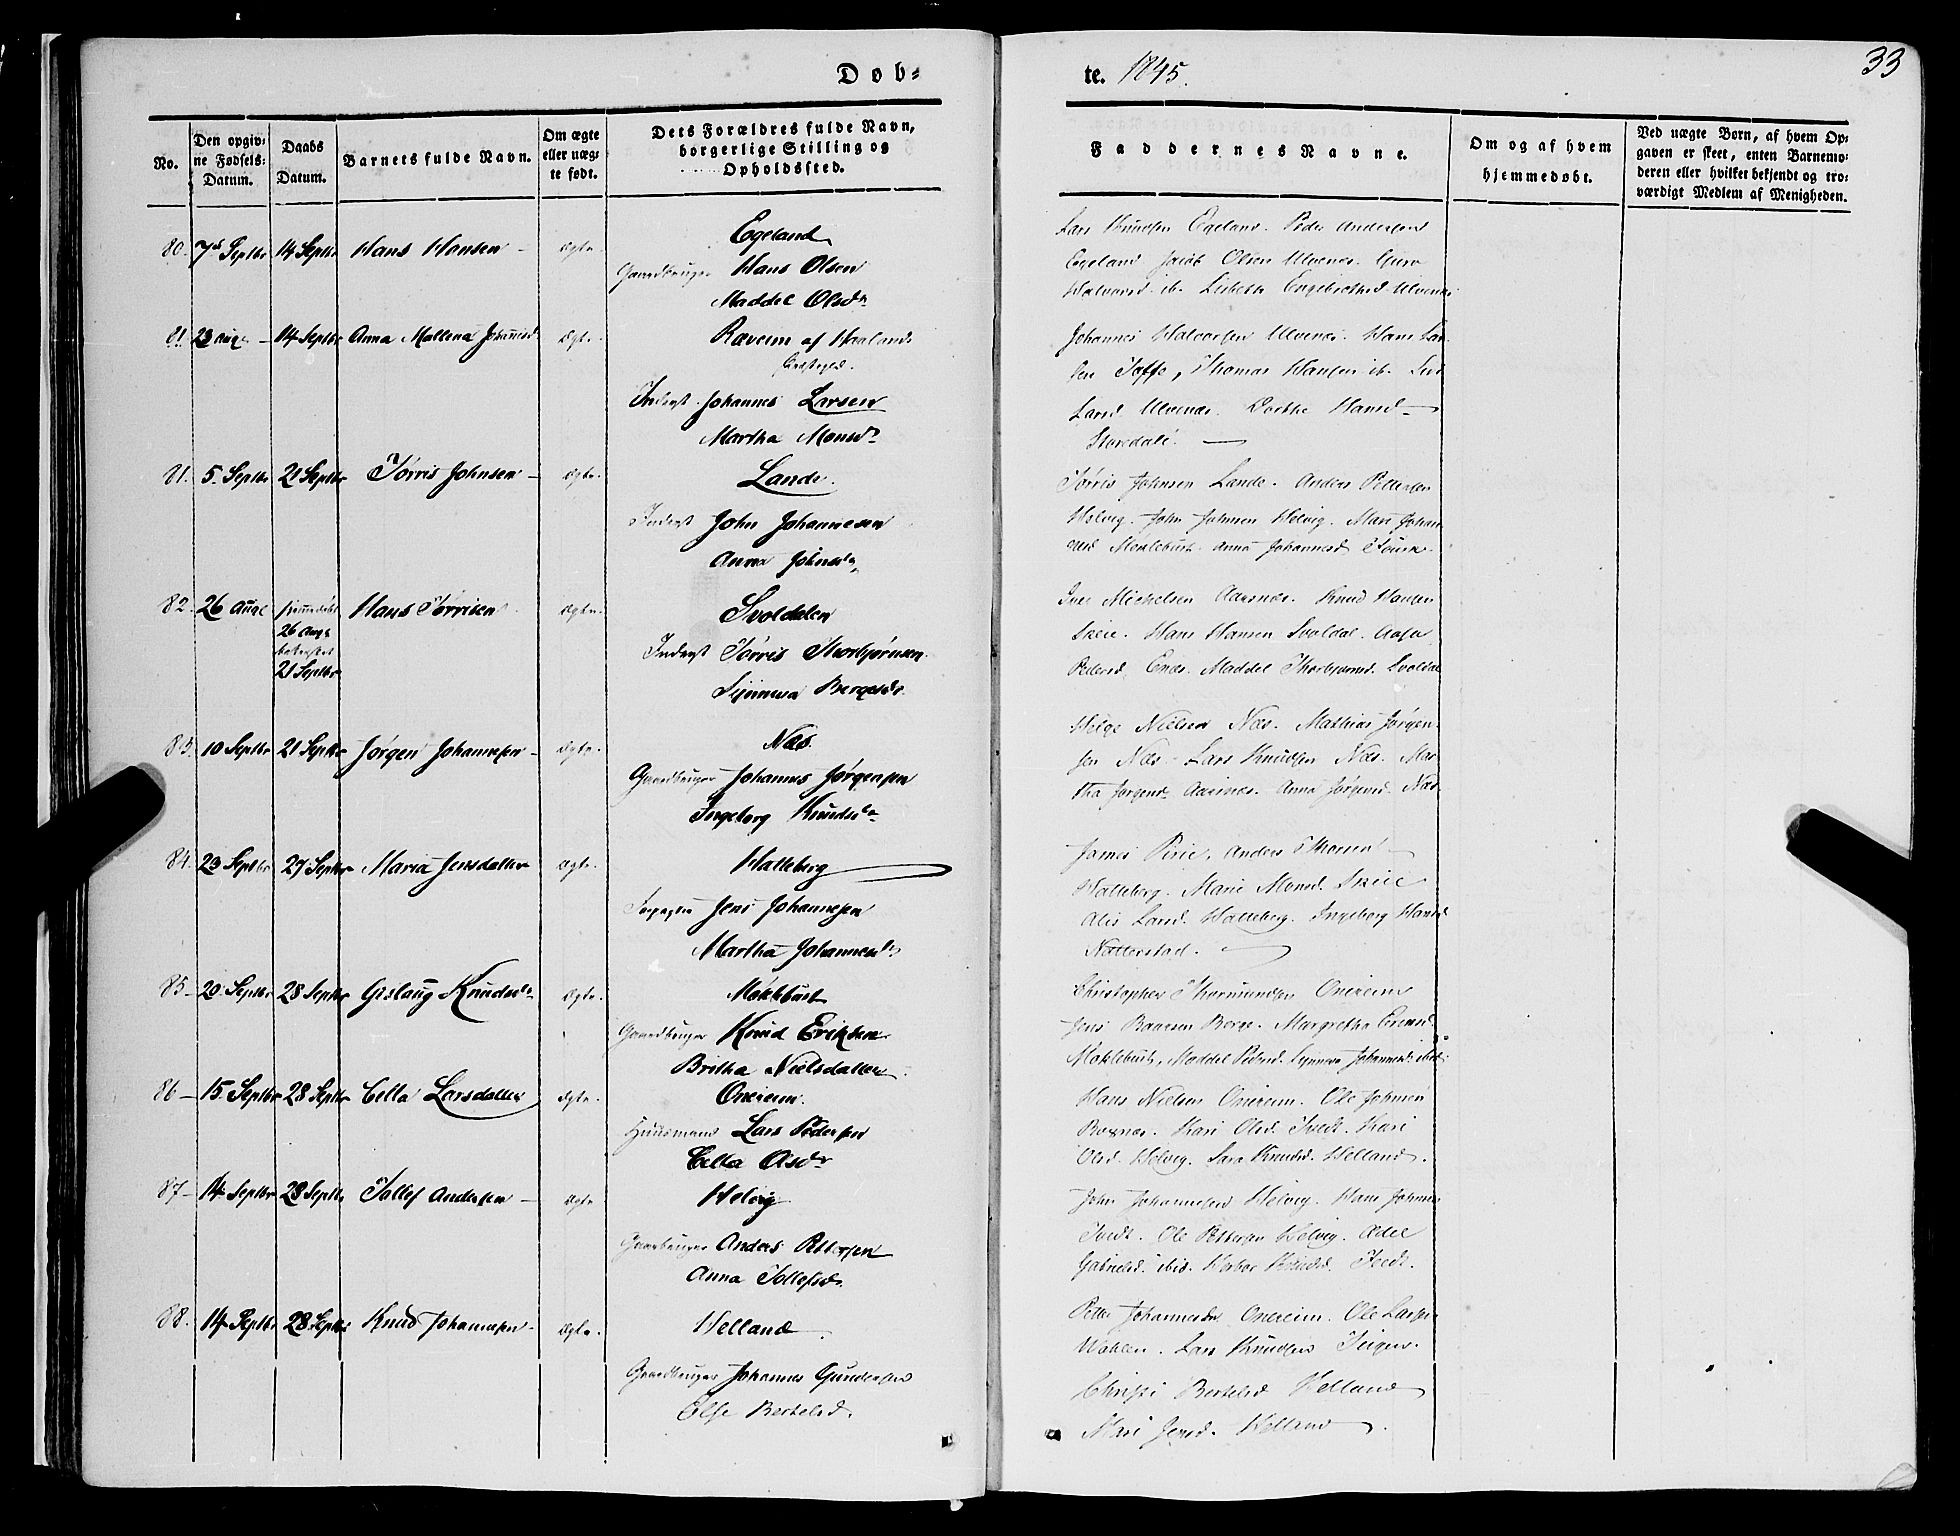 Døb-
te. 1845.
33
No.
Den opgiv-
ne Fødsels-
Datum.
Daabs
Datum.
Barnets fulde Navn.
Om ægte
eller uæg-
te født.
Dets Forældres fulde Navn,
borgerlige Stilling og
Opholdssted.
Faddernes Navne.
Om og af hvem
hjemmedøbt.
Ved uægte Børn, af hvem Op-
gaven er skeet, enten Barnemo-
deren eller hvilket bekjendt og tro-
værdigt Medlem af Menigheden.
80. 7d Septbr 14 Septbr Hans Hansen - Ægte.
Egeland
Gaardbruger Hans Olsen
Maddel Olsdr
Lars Knudsen Egeland. Peder Andersen
Egeland Jacob Olsen Ulvenes. Guro
Halvorsd. ib. Lisbeth Engebretsd. Ulvenes
81. 23 Aug. - 14 Septbr Anna Mallena Johannesd. Ægte.
Ræveim af Haaland
Præstegld.
Inderst Johannes Larsen
Martha Monsdr
Johannes Halvorsen Ulvenes. Hans Lar-
sen Toffe, Thomas Hansen ib.
Larsd. Ulvenes. Dorthe Hansd. -
Storedale. -
81. 5. Septbr 21 Septbr Tørris Johnsen - Ægte.
Lande.
Inderst John Johannesen
Anna Johnsdr
Tørris Johnsen Lande. Anders Pettersen
Helvig. John Johnsen Helvig. Mari Johan-
nesd Møklebust. Anna Johannesd
82. 26 Augt hjemmedøbt Hans Tørrisen Ægte.
26 Augt
bekræftet
21 Septbr
Svoldalen
Inderst Tørris Thorbjørnsen.
Synneva Bergesdr.
Iver Michelsen Aarsnes. Knud Hansen
Skeie. Hans Hansen Svoldal. Aasa
Pedersd. Enes. Maddel Thorbjørnsd. Svoldal
83. 10 Septbr 21 Septbr Jørgen Johannesen - Ægte.
Næs.
Gaardbruger Johannes Jørgensen
Ingeborg Knudsdr
Helge Nielsen Næs. Mathias Jørgen-
sen Næs - Lars Knudsen Næs. Mar-
tha Jørgensd. Aarsnes. Anna Jørgensd. Næs.
84. 23 Septbr 27 Septbr Maria Jensdatter Ægte.
Halleberg
Forpagter Jens Johannesen
Martha Johannesdr
James Pirie, Anders Thorsen
Halleberg. Mari Monsd. Skeie
Larsd. Halleberg. Ingeborg Hansd
Natterstad.
85 - 20. Septbr 28 Septbr Gislaug Knudsdr Ægte.
Møklebust
Gaardbruger Knud Eriksen
Britha Nielsdatter.
Christopher Thormundsen Onereim
Jens Baarsen Berge. Margretha
Møklebust, Maddel Pedersd. Synneva Johannesd. ibid.
86 - 15. Septbr 28 Septbr Cella Larsdatter Ægte.
Onereim.
Huusmand Lars Pedersen
Cella Asdr
Hans Nielsen Onereim. Ole Johnsen
Bognes. Kari Olsd. Tvedt. Kari
Olsd. Helvig. Sara Knudsd. Helland.
87 - 14 Septbr 28 Septbr Tollef Andersen - Ægte
Helvig
Gaardbruger Anders Pettersen
Anna Tollefsdr.
John Johannesen Helvig. Hans Johnsen
Tvedt. Ole Pettersen Helvig. Adel
Gabrielsd. ibid. Barbro Knudsd. Tvedt.
88. 14 Septbr 28 Septbr Knud Johannesen - Ægte.
Helland
Gaardbruger Johannes Gundersen
Else Bertelsd.
Petter Johannesen Onereim. Ole Larsen
Wahlen. Lars Knudsen
Christi Bertelsd Helland
Mari Jensd. Helland.